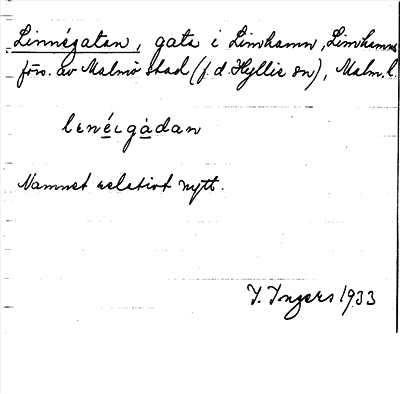 Linnégatan, gata i Limhamn, Limhamns
förs. av Malmö stad (f. d. Hyllie sn), Malm. l.
lenéegàdan
Namnet relativt nytt.
I. Ingers 1933